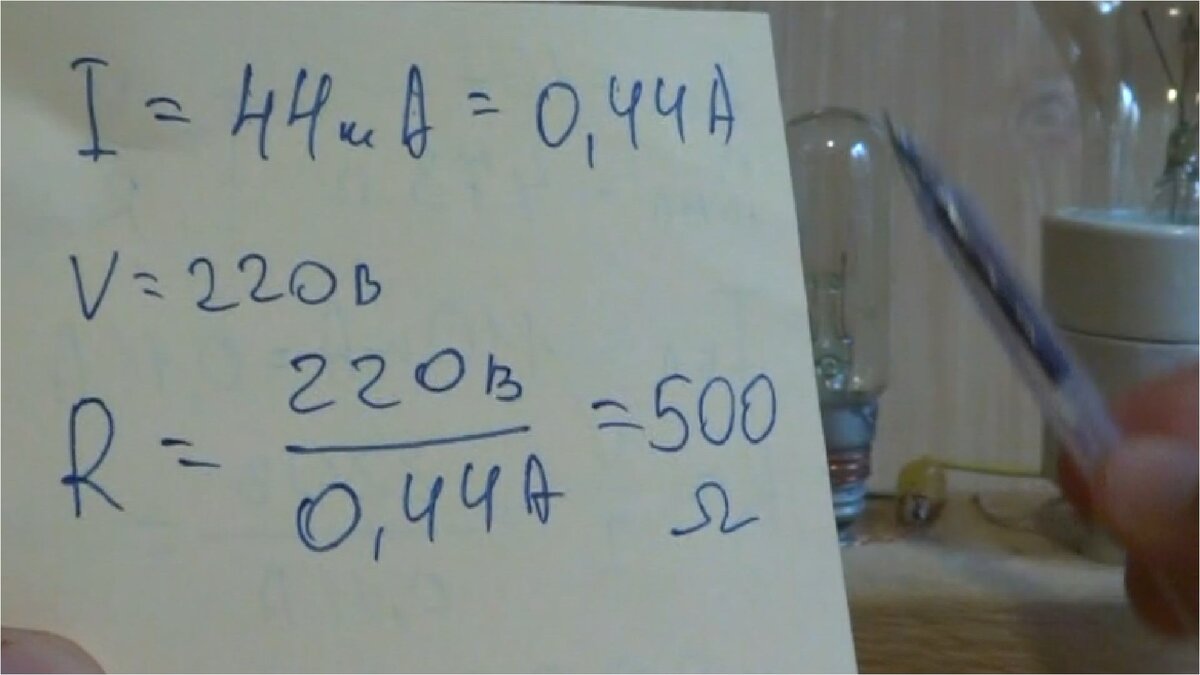 I = 44мА = 0,44А
V = 220в
R = 220в / 0,44А = 500 Ω